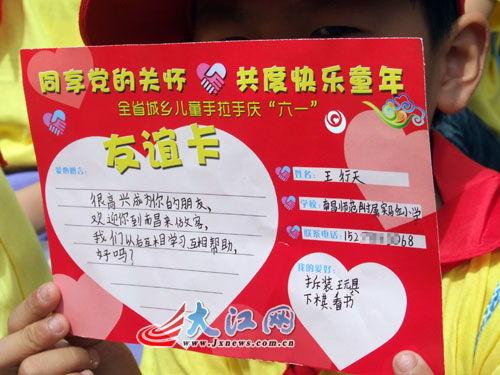 同享党的关怀 共度快乐童年
全省城乡儿童手拉手庆“六一”
友谊卡
爱心语言:
很高兴成为你的朋友,
欢迎你到南昌来做客,
我们以后互相学习互相帮助,
好吗?
姓名: 王行天
学校: 南昌师范附属实验小学
联系电话: 152 68
我的爱好:
拆装玩具
下棋、看书
大江网
www.Jxnews.com.cn